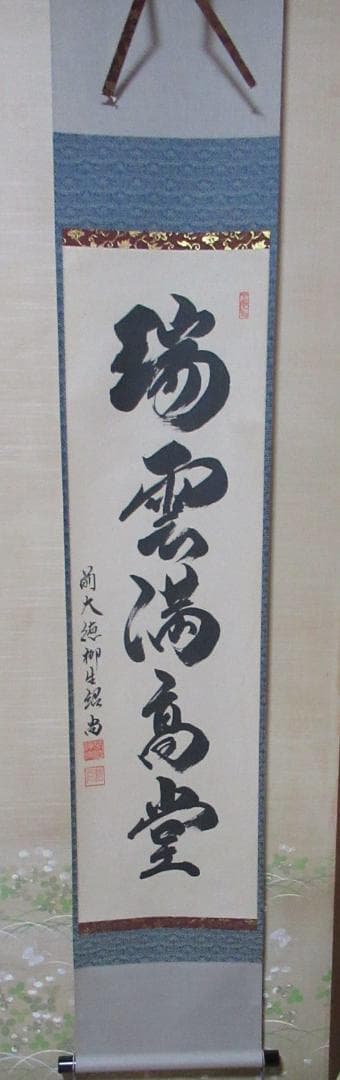 瑞雲満高堂
前大徳柳生紹尚